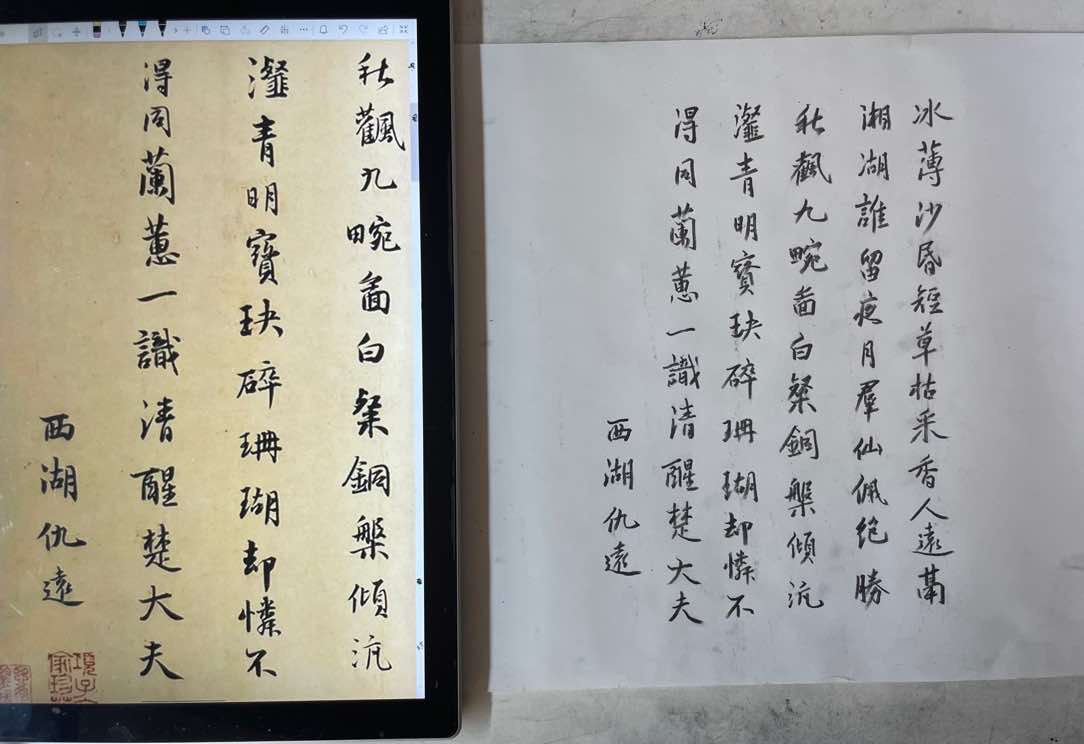 秋飌九畹啚白粲銅槃傾沆
瀣青明寶玦碎珊瑚却憐不
得同蘭蕙一識清醒楚大夫
西湖仇遠
冰薄沙昏短草枯采香人遠
湘湖誰留夜月羣仙佩絕勝
秋飌九畹啚白粲銅槃傾沆
瀣青明寶玦碎珊瑚却憐不
得同蘭蕙一識清醒楚大夫
西湖仇遠